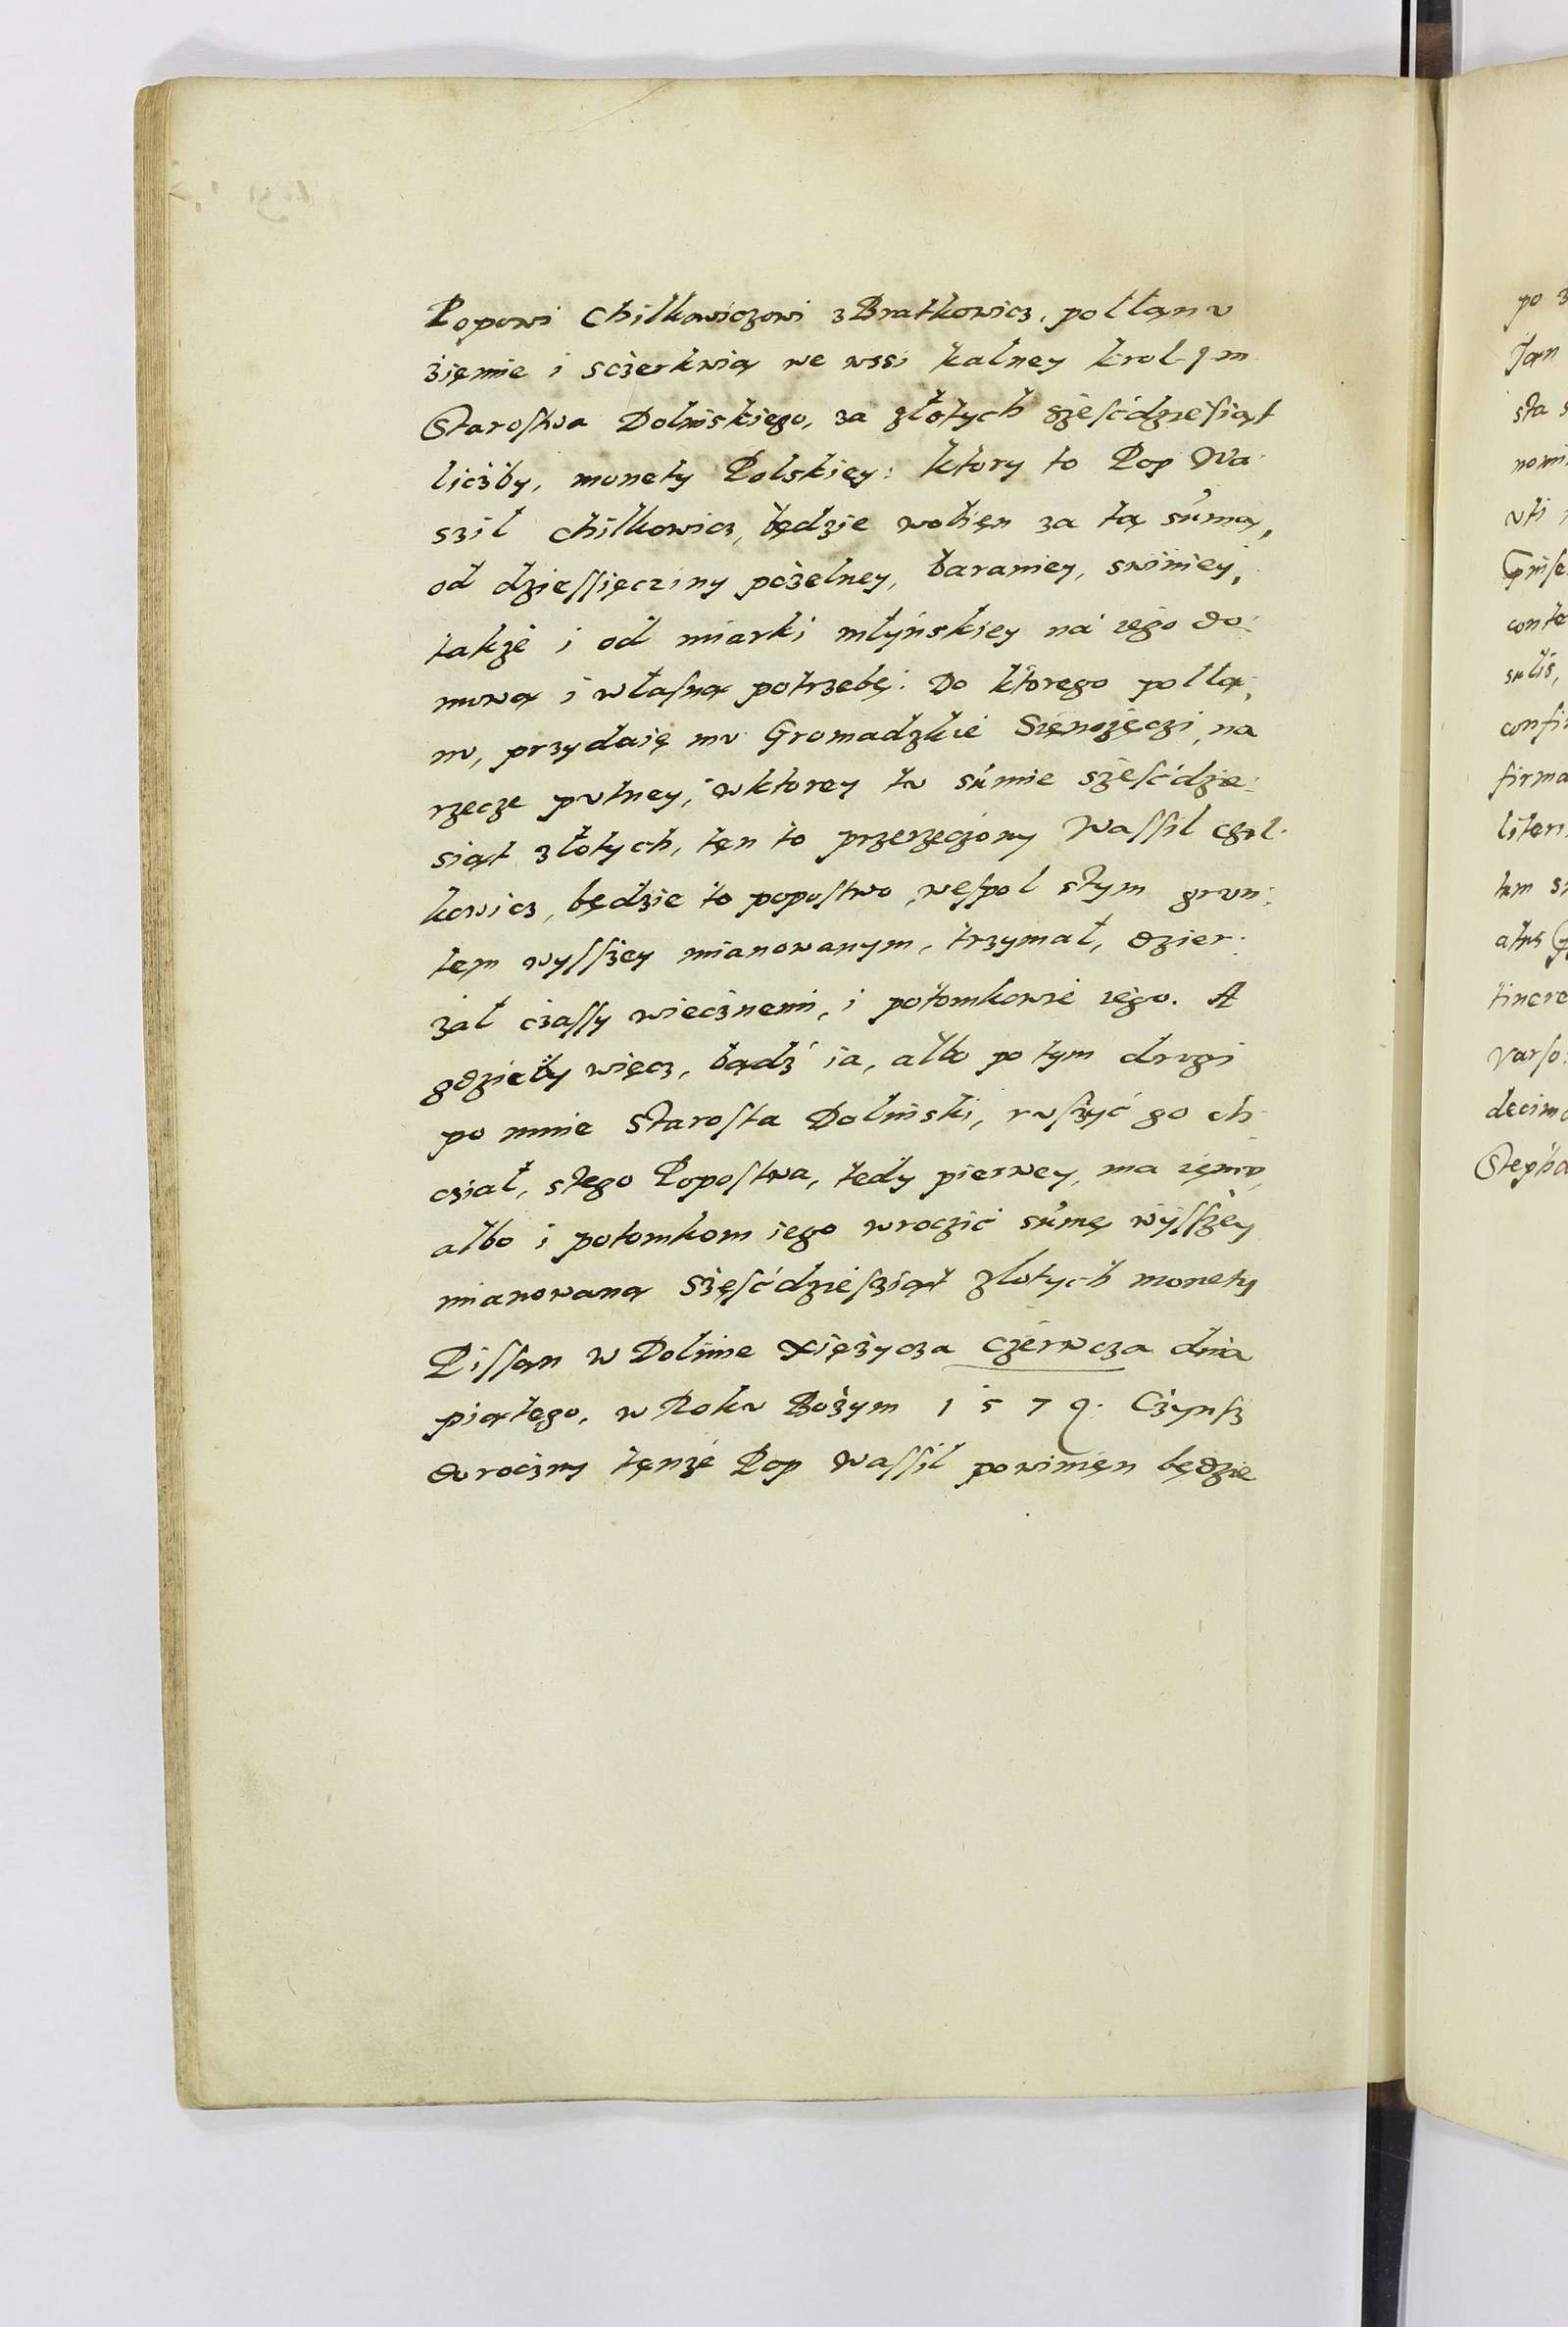 Popowi Chilkowiczowi z Bratkowicz, pollanu
zięmie i sczerkwią we wssi kalney krol. Jm
Starostwa Dolinskiego, za złotych sześćdziesiąt
liczby, monety Polskięy: ktory to Pop Wa-
szil Chilkowicz, będzie wolięn za tą sumą,
od dziessięcziny pożelney, baraniey, swiniey,
takze i od miarki młyńskiey na iego do-
mową i własną potrzebę: Do ktorego polla-
nu, przydaię mu Gromadzkie Sięnożęczi, na
rzecze putney, w ktorey tu sumie sześćdzie-
siąt złotych, tęn to przerzeczony Wassil Chil-
kowicz, będzie to popostwo, wespol stym grun-
tem wysszey mianowanym, trzymał, dzier-
zał czassy wiecznemi, i potomkowie iego. A
gdzieby więcz, bądź ia, albo po tym drugi
po mnie Starosta Dolinski, ruszyć go ch-
cział, stego Popostwa, tedy pierwey, ma iemu,
albo i potomkom iego wroczić sumę wysszey
mianowaną sześćdziesziąt zlotych monety
Pissan w Dolinie Xiężycza Czerwcza dnia
piątego, w Roku Bożym 1579. Czynsz
doroczny tęnże Pop Wassil powinięn będzie
po
Jan
sta
uti
conte
sulis,
firma
tum
tinere
varso
decim
Stepha